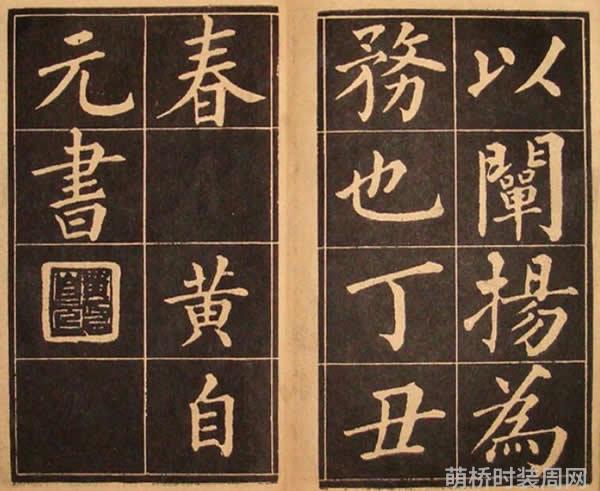 以闡揚為
務也丁丑
春 黄自
元書
萌桥时装周网